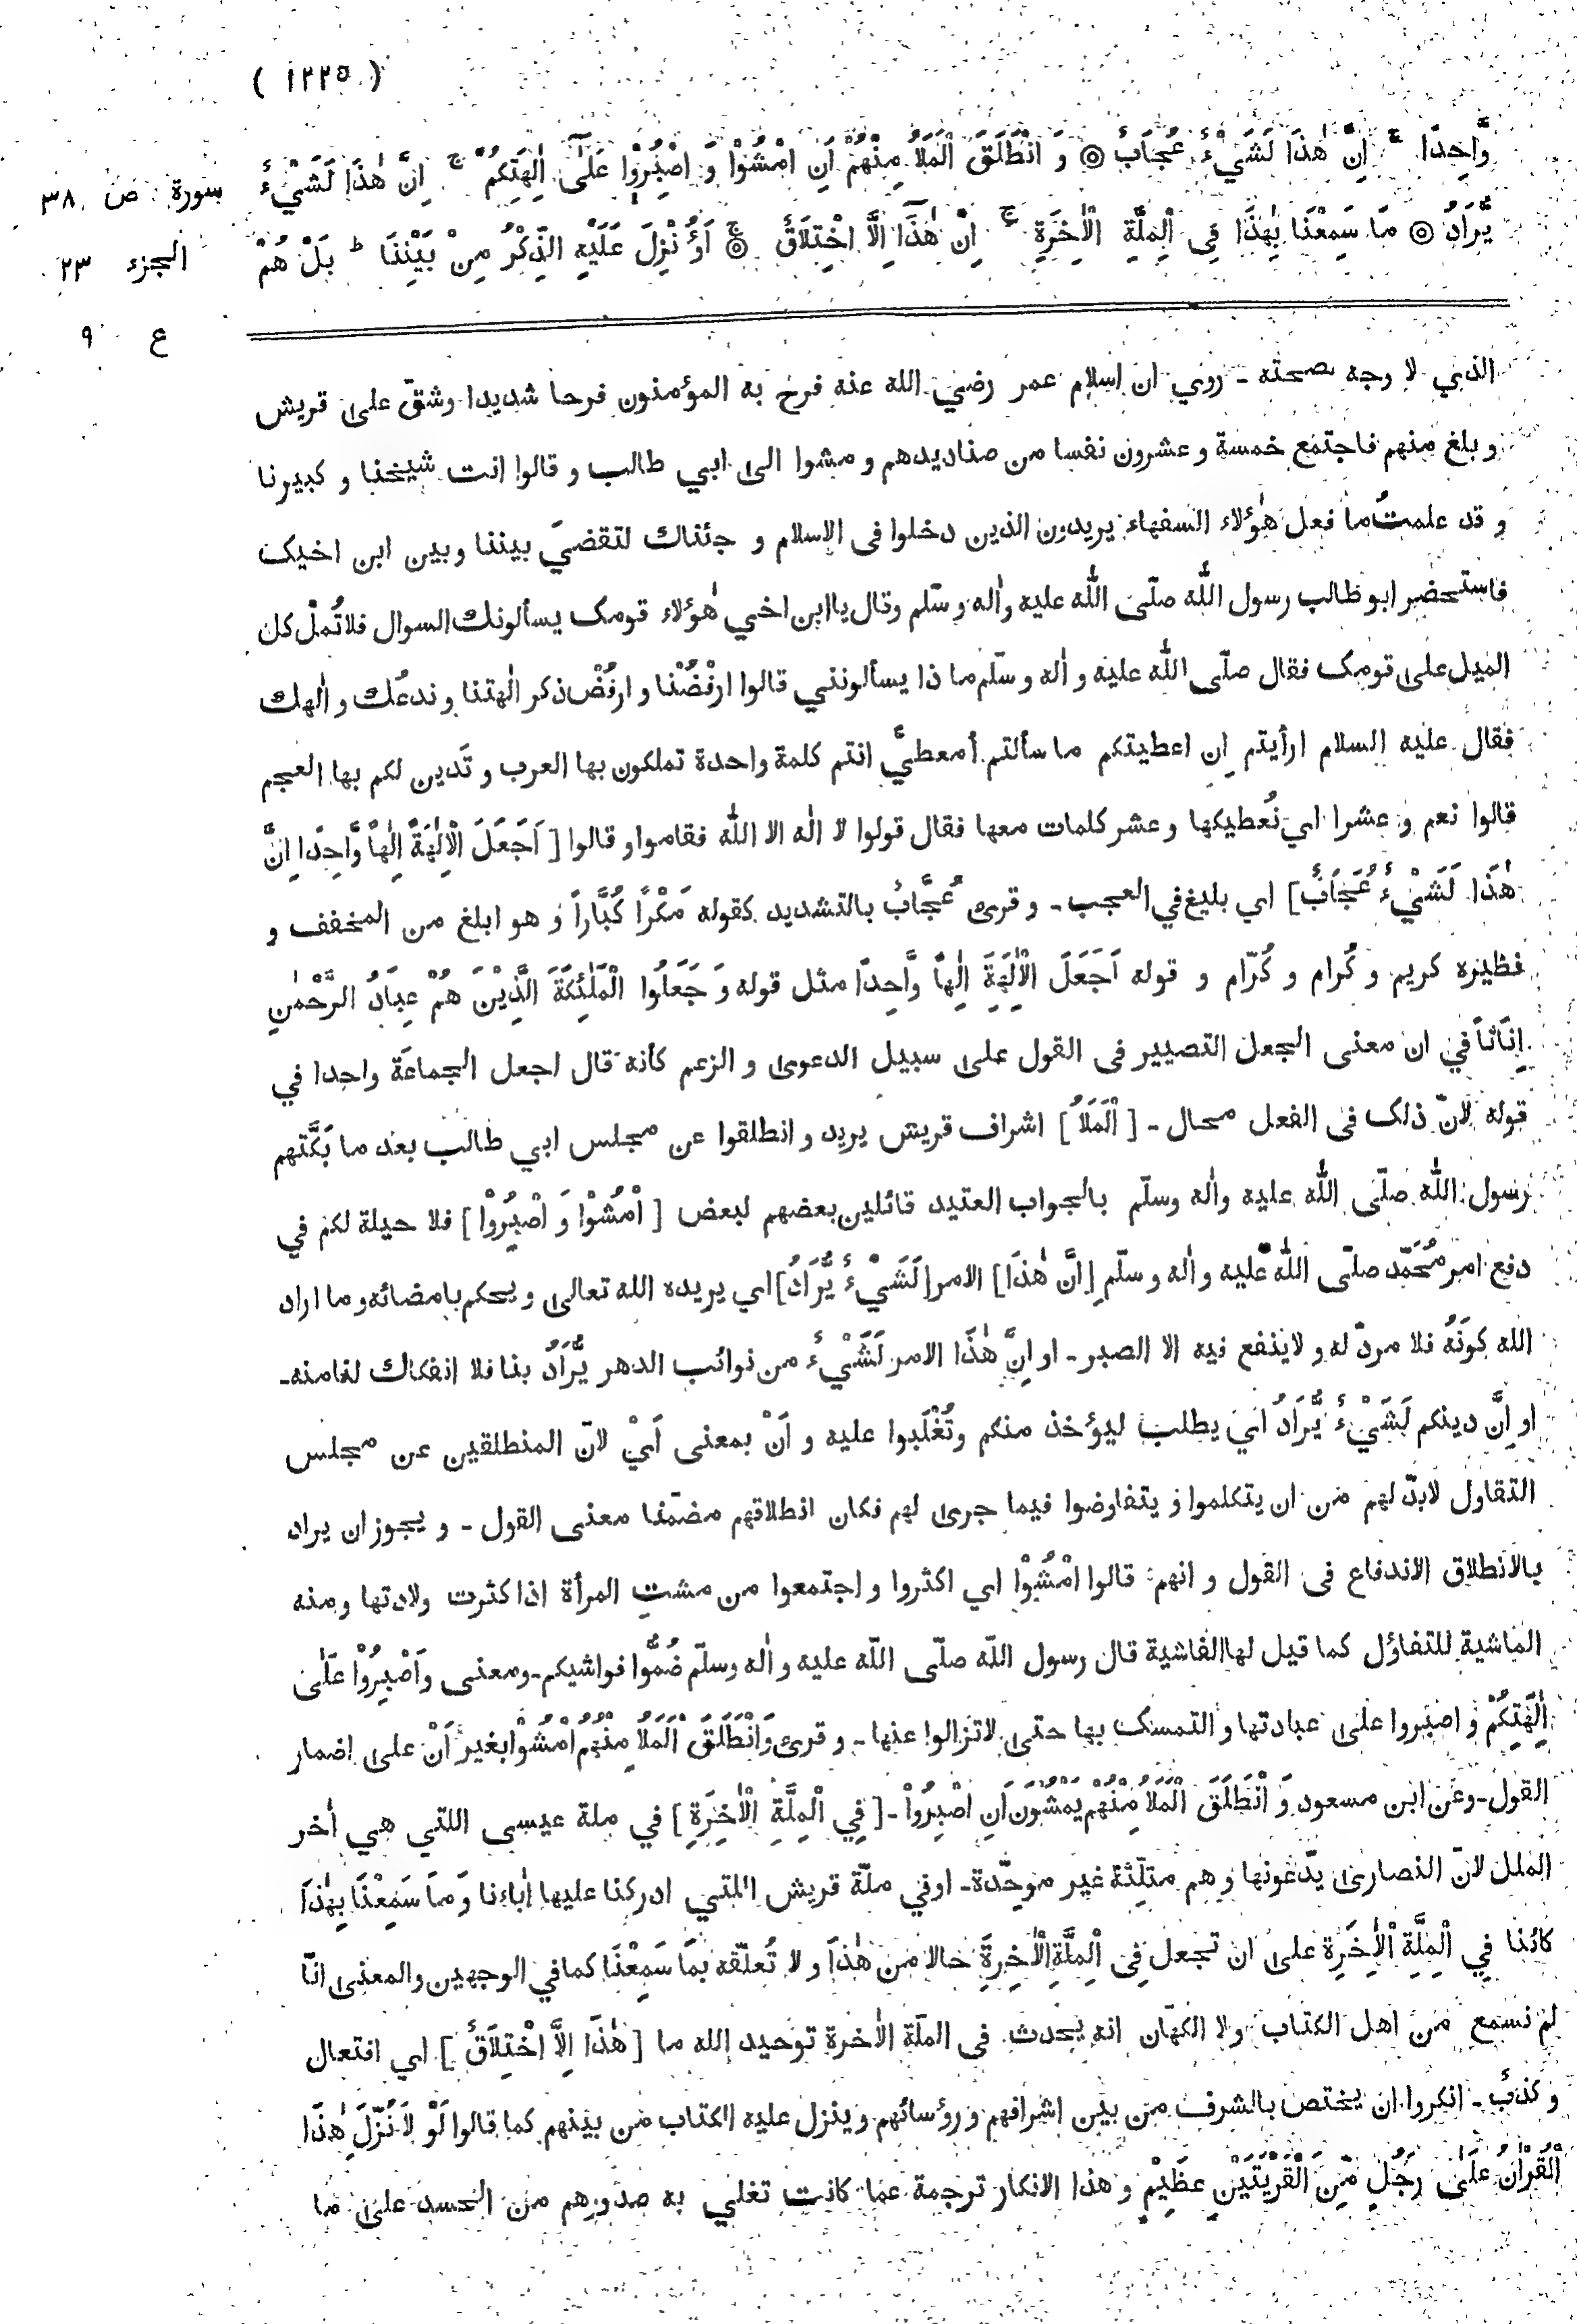 ( ١٢٢٥ )
وَّاحِدًا ۚ اِنَّ هٰذَا لَشَیْءٌ عُجَابٌ ۞ وَ انْطَلَقَ الْمَلَاُ مِنْهُمْ اَنِ امْشُوْا وَ اصْبِرُوْا عَلٰۤى اٰلِهَتِكُمْ ۚ اِنَّ هٰذَا لَشَیْءٌ
سورة ص ٣٨
یُّرَادُ ۞ مَا سَمِعْنَا بِهٰذَا فِی الْمِلَّةِ الْاٰخِرَةِ ۚ اِنْ هٰذَاۤ اِلَّا اخْتِلَاقٌ ۞ اَؤُنْزِلَ عَلَیْهِ الذِّكْرُ مِنْ بَیْنِنَا ؕ بَلْ هُمْ
الجزء ٢٣
ع ٩
الذي لا وجه لصحته - روي ان اسلام عمر رضي الله عنه فرح به المؤمنون فرحا شديدا وشقّ على قريش
و بلغ منهم فاجتمع خمسة و عشرون نفسا من صناديدهم و مشوا الى ابي طالب و قالوا انت شيخنا و كبيرنا
و قد علمتَ ما فعل هٰؤلاء السفهاء يريدون الذين دخلوا فى الاسلام و جئناك لتقضيَ بيننا وبين ابن اخيك
فاستحضر ابو طالب رسول الله صلّى الله عليه واٰله وسلّم وقال يا ابن اخي هٰؤلاء قومك يسألونك السوال فلا تُملْ كل
الميل على قومك فقال صلّى الله عليه و اٰله و سلّم ما ذا يسألونني قالوا ارفُضْنا و ارفُضْ ذكر اٰلهتنا و ندعَك و اٰلهك
فقال عليه السلام ارأيتم اِن اعطيتكم ما سألتم أمعطيَّ انتم كلمة واحدة تملكون بها العرب و تَدين لكم بها العجم
قالوا نعم و عشرا اي نُعطيكها و عشر كلمات معها فقال قولوا لا الٰه الا الله فقاموا و قالوا [ اَجَعَلَ الْاٰلِهَةَ اِلٰهاً وَّاحِدًا اِنَّ
هٰذَا لَشَیْءٌ عُجَابٌ ] اي بليغ في العجب - و قرئ عُجَّابٌ بالتشديد كقوله مَكْرًا كُبَّارًا و هو ابلغ من المخفف و
نظيره كريم و كُرام و كُرّام و قوله اَجَعَلَ الْاٰلِهَةَ اِلٰهاً وَّاحِدًا مثل قوله وَ جَعَلُوا الْمَلٰئِكَةَ الَّذِیْنَ هُمْ عِبَادُ الرَّحْمٰنِ
اِنَاثاً في ان معنى الجعل التصيير فى القول على سبيل الدعوى و الزعم كأنه قال اجعل الجماعة واحدا في
قوله لانّ ذلك فى الفعل محال - [ الْمَلَاُ ] اشراف قريش يريد و انطلقوا عن مجلس ابي طالب بعد ما بَكَّتهم
رسول الله صلّى الله عليه واٰله وسلّم بالجواب العتيد قائلين بعضهم لبعض [ امْشُوْا وَ اصْبِرُوْا ] فلا حيلة لكم في
دفع امر مُحَمّد صلّى الله عليه و اٰله و سلّم [ اِنَّ هٰذَا ] الامر [ لَشَیْءٌ یُّرَادُ ] اي يريده الله تعالى و يحكم بامضائه و ما اراد
الله كونَهُ فلا مردّ له و لا ينفع فيه الا الصبر - او اِنَّ هٰذَا الامر لَشَیْءٌ من نوائب الدهر یُّرَادُ بنا فلا انفكاك لنا منه -
او اِنَّ دينكم لَشَیْءٌ یُّرَادُ اي يطلب ليؤخذ منكم وتُغْلَبوا عليه و اَنْ بمعنى اَيْ لانّ المنطلقين عن مجلس
التقاول لابدّ لهم من ان يتكلموا و يتفاوضوا فيما جرى لهم فكان انطلاقهم مضمّنا معنى القول - و يجوز ان يراد
بالانطلاق الاندفاع فى القول و انهم قالوا امْشُوْا اي اكثروا و اجتمعوا من مشتِ المرأة اذا كثرت ولادتها ومنه
الماشية للتفاؤل كما قيل لها الفاشية قال رسول الله صلّى الله عليه و اٰله وسلّم ضُمُّوا فواشيكم - ومعنى وَاصْبِرُوْا عَلٰى
اٰلِهَتِكُمْ و اصبروا على عبادتها و التمسك بها حتى لا تزالوا عنها - و قرئ وَانْطَلَقَ الْمَلَاُ مِنْهُمُ امْشُوْا بغير اَنْ على اضمار
القول - وعن ابن مسعود وَ انْطَلَقَ الْمَلَاُ مِنْهُمْ یَمْشُوْنَ اَنِ اصْبِرُوْا - [ فِی الْمِلَّةِ الْاٰخِرَةِ ] في ملة عيسى اللتي هي اٰخر
الملل لانّ النصارى يدّعونها و هم مثلّثة غير موحّدة - او في ملّة قريش اللتي ادركنا عليها اٰباءنا وَ مَا سَمِعْنَا بِهٰذَا
كائنا فِي الْمِلَّةِ الْاٰخِرَةِ على ان تجعل فِى الْمِلَّةِ الْاٰخِرَةِ حالا من هٰذَا و لا تُعلّقه بمَا سَمِعْنَا كما في الوجهين والمعنى انّا
لم نسمع من اهل الكتاب ولا الكهّان انه يحدث فى الملّة الاٰخرة توحيد الله ما [ هٰذَا اِلَّا اخْتِلَاقٌ ] اي افتعال
و كذب - انكروا ان يختص بالشرف من بين اشرافهم و رؤسائهم و ينزل عليه الكتاب من بينهم كما قالوا لَوْ لَا نُزِّلَ هٰذَا
الْقُرْاٰنُ عَلٰى رَجُلٍ مِّنَ الْقَرْیَتَیْنِ عَظِیْمٍ و هذا الانكار ترجمة عما كانت تغلي به صدورهم من الحسد على ما